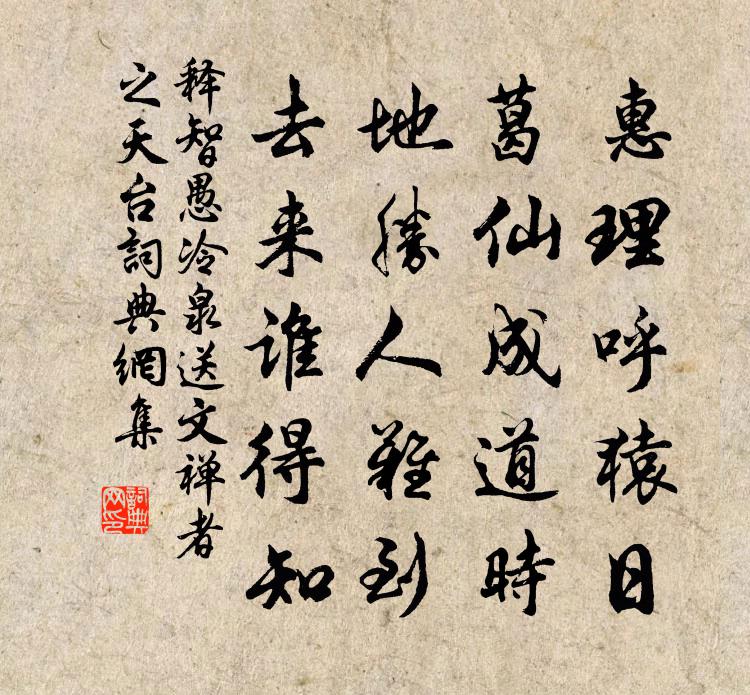 惠理呼猿日
葛仙成道時
地勝人難到
去来谁得知
释智愚冷泉送文禅者
之天台詞典網集
詞典网印